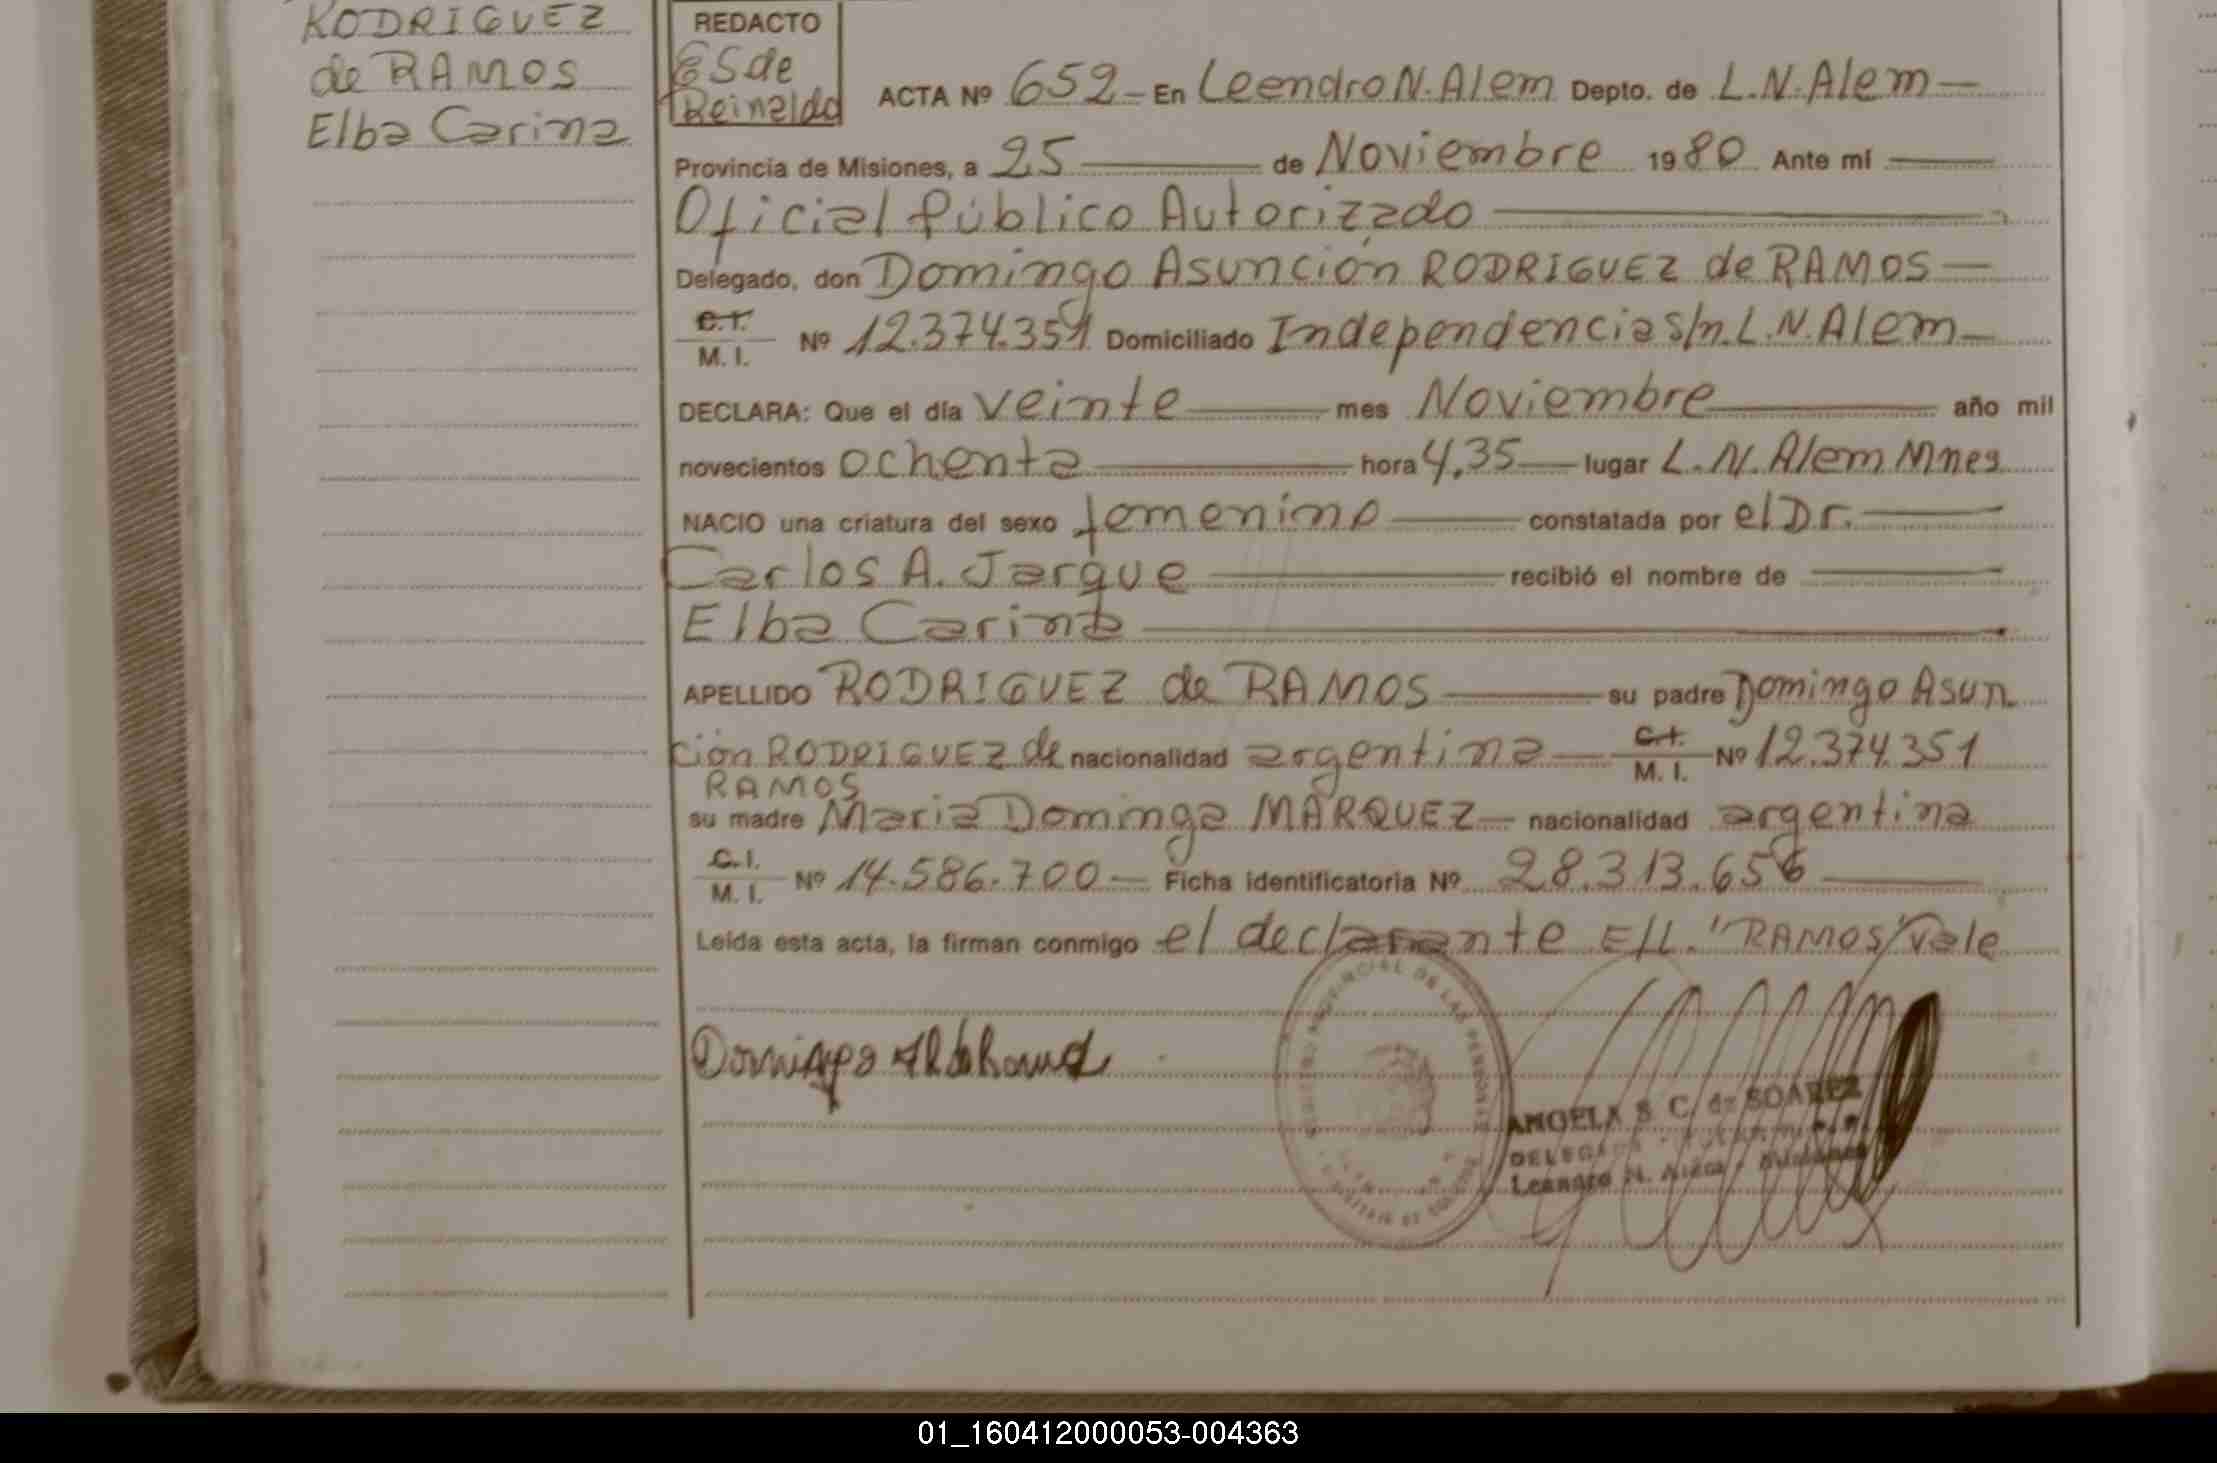 RODRIGUEZ
de RAMOS
Elba Carina
REDACTO
ES de
Reinaldo
ACTA Nº 652 - En Leandro N. Alem Depto. de L.N. Alem —
Provincia de Misiones, a 25 — de Noviembre 1980 Ante mí —
Oficial Público Autorizado —
Delegado, don Domingo Asunción RODRIGUEZ de RAMOS —
C.I. / M.I. Nº 12.374.351 Domiciliado Independencia s/n. L.N. Alem —
DECLARA: Que el día veinte — mes Noviembre — año mil
novecientos ochenta — hora 4,35 — lugar L. N. Alem Mnes
NACIO una criatura del sexo femenino — constatada por el Dr. —
Carlos A. Jarque — recibió el nombre de —
Elba Carina —
APELLIDO RODRIGUEZ de RAMOS — su padre Domingo Asun
ción RODRIGUEZ de nacionalidad argentina — C.I. / M.I. Nº 12.374.351
RAMOS
su madre Maria Dominga MARQUEZ — nacionalidad argentina
C.I. / M.I. Nº 14.586.700 — Ficha identificatoria Nº 28.313.656 —
Leída esta acta, la firman conmigo el declarante E/L. "RAMOS" Vale
Domingo
ANGELA S. C. de SOAREZ
DELEGADA
Leandro N. Alem - Misiones
01_160412000053-004363